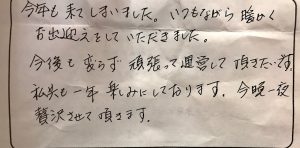 今年も来てしまいました。いつもながら暖かく
お出迎えをしていただきました。
今後も変らず頑張って運営して頂きたいです。
私共も一年楽しみにしております。今晩一夜
贅沢させて頂きます。